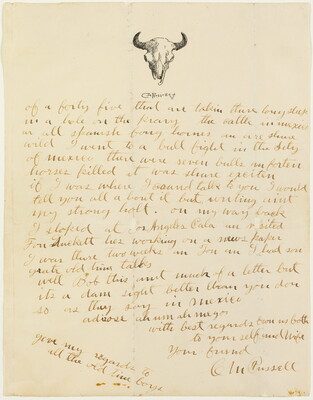 of a forty five that are takin there long sleep
in a hole on the prary the cattle in mexico
ar all spanish long hornes an are shure
wild I went to a bull fight in the City
of mexico there were seven bulls an forten
horses killed it was shure exciten
if I was where I could talk to you I would
tell you all about it but writing aint
my strong holt. on my way back
I stoped at Los Angeles Cala an visited
Ton Luckett hes working on a news paper
I was there two weeks an Ton an I had som
great old time talks
well Bob this aint much of a letter but
its a dam sight better than you don
so as they say in Mexico
adiose ah um ah mego
with best regards from us both
to yourself and Wife
Your friend
C M Russell
give my regards to
all the old time boys